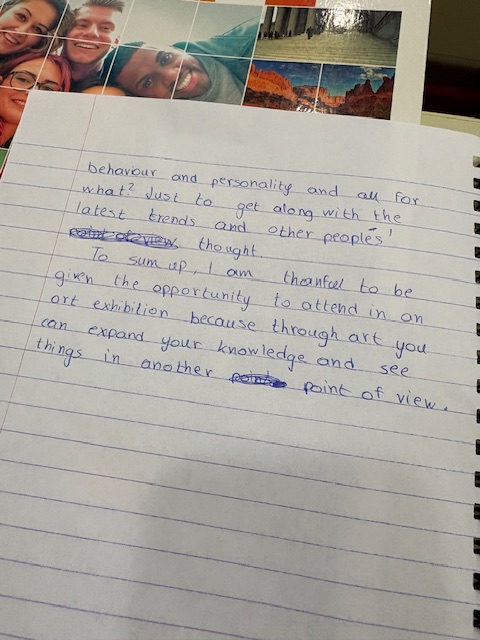 behaviour and personality and all for
what? Just to get along with the
latest trends and other peoples'
point of view thought.
To sum up, I am thanful to be
given the opportunity to attend in an
art exhibition because through art you
can expand your knowledge and see
things in another point of view.